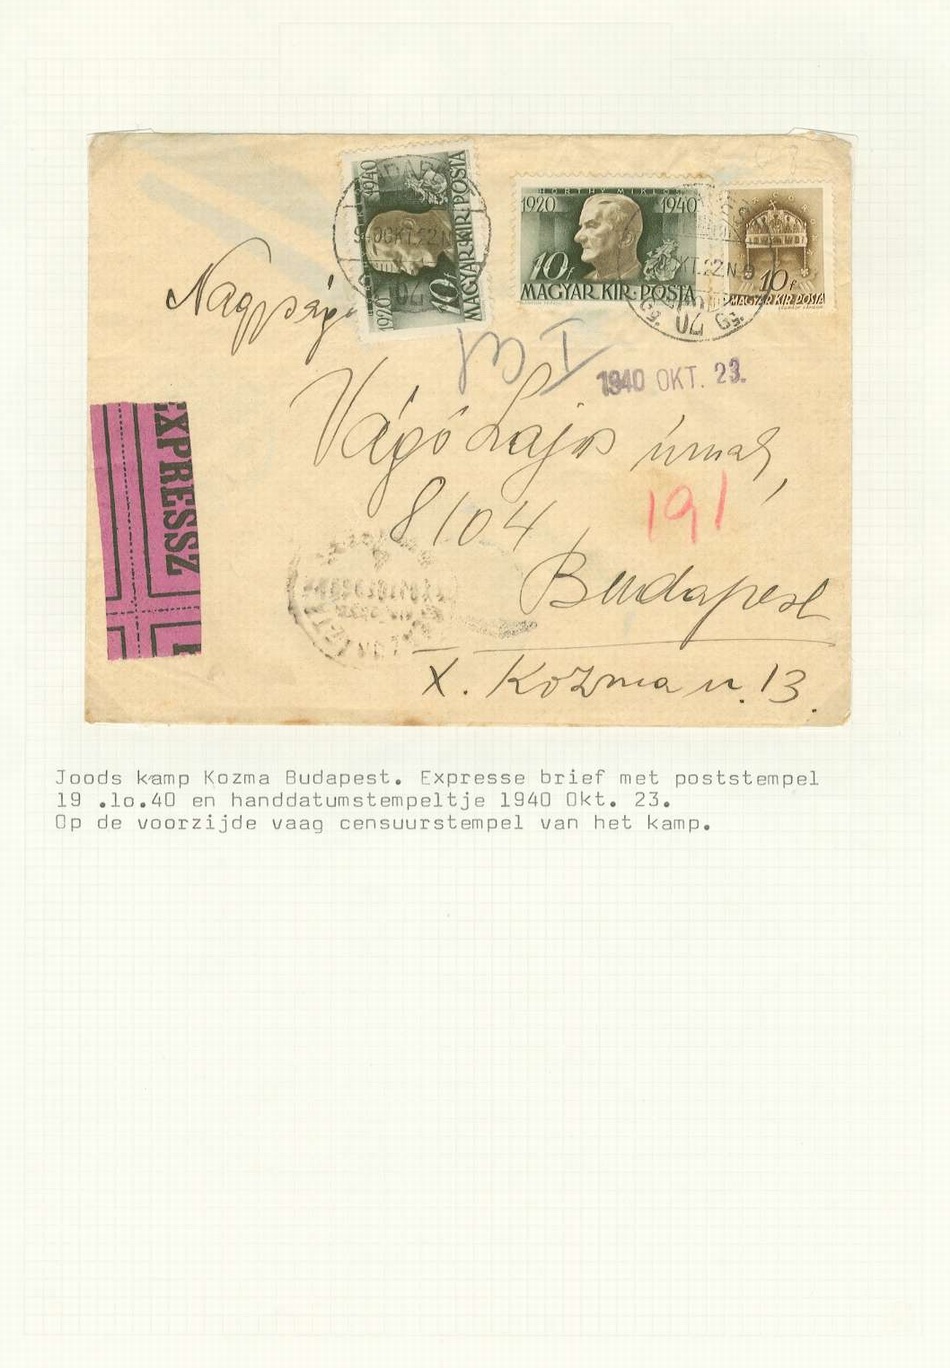 1920 1940
10f
MAGYAR KIR. POSTA
HORTHY MIKLÓS
1920 1940
10f
MAGYAR KIR. POSTA
10f
MAGYAR KIR. POSTA
OKT. 22. N
KT. 22. N 9
70
70
Vágó Lajos úrnak,
1940 OKT. 23.
191
8104
EXPRESSZ
Budapest
X. Kozma u. 13.
Joods kamp Kozma Budapest. Expresse brief met poststempel
19 .lo.40 en handdatumstempeltje 1940 Okt. 23.
Op de voorzijde vaag censuurstempel van het kamp.